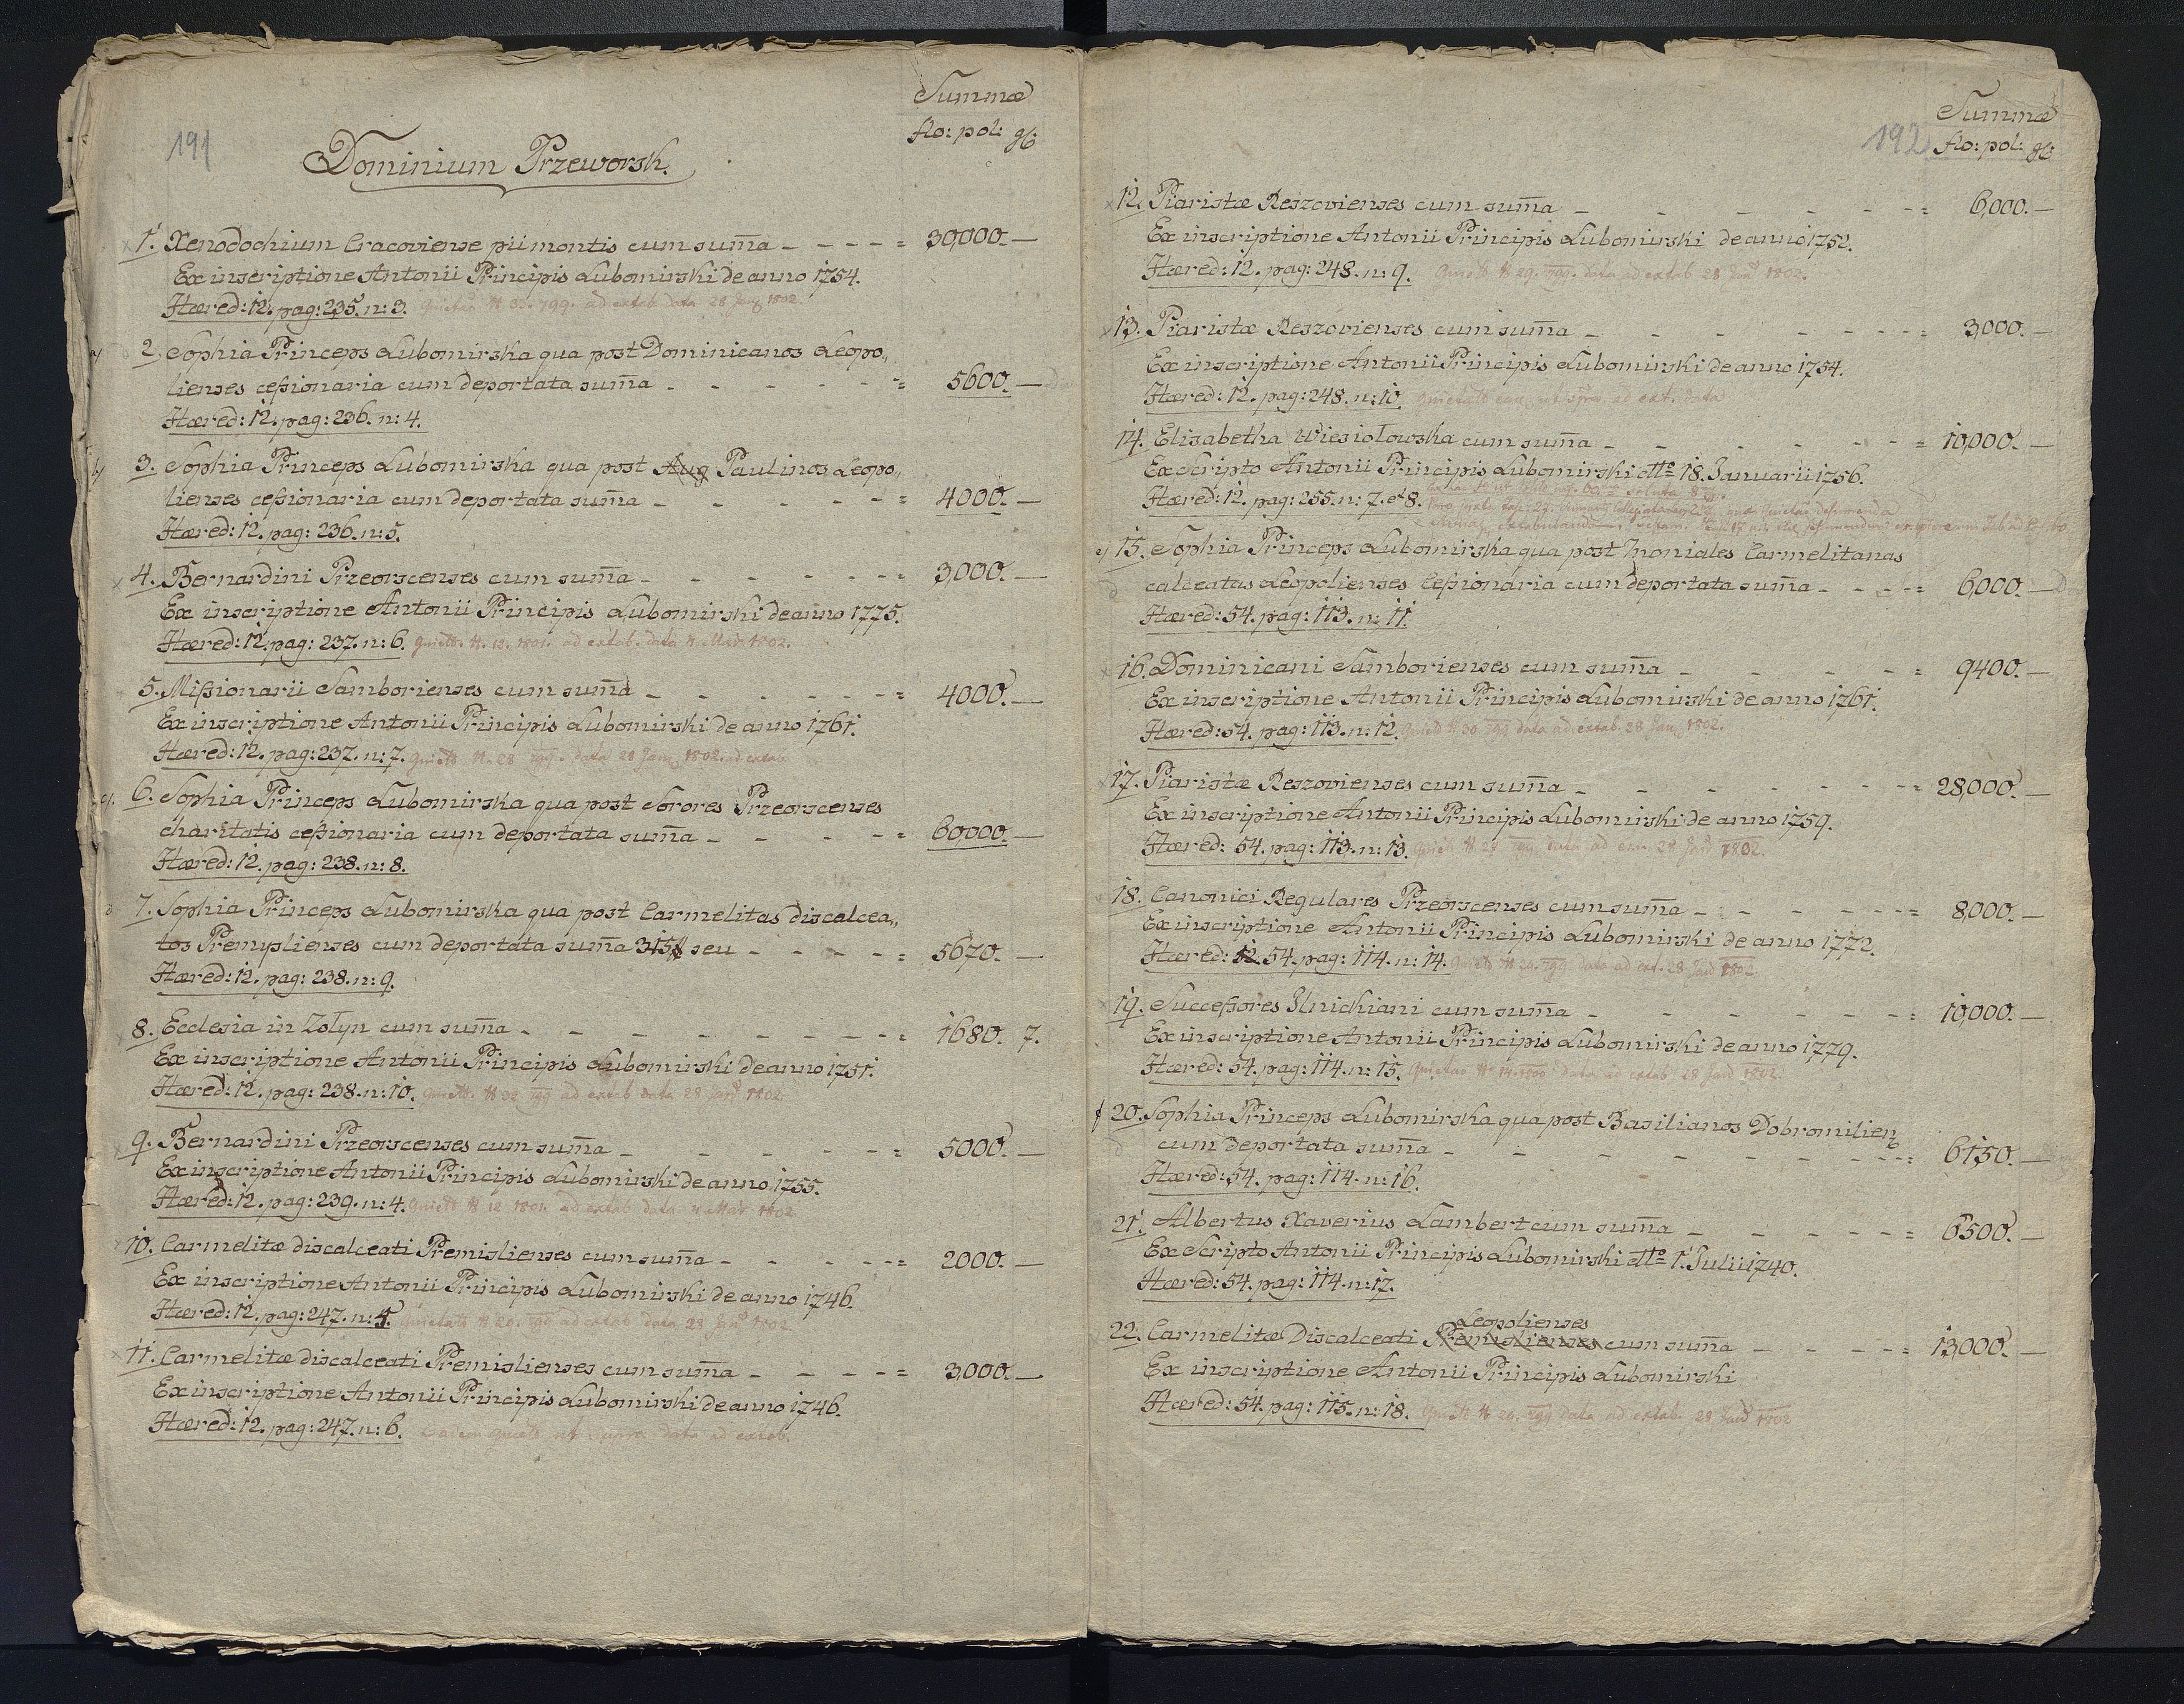 191
Summæ
flo: pol: gl:
Dominium Przeworsk.
1. Xenodochium Cracoviense pii montis cum suma̅ - - - - = 30,000. —
Ex inscriptione Antonii Principis Lubomirski de anno 1754.
Hæred: 12. pag: 235. n: 3. ad extab. data 28 1802.
a) 2. Sophia Princeps Lubomirska qua post Dominicanos Leopo„
lienses cessionaria cum deportata suma̅ - - - - - = 5600. —
Hæred: 12. pag: 236. n: 4.
b) 3. Sophia Princeps Lubomirska qua post Aug Paulinos Leopo„
lienses cessionaria cum deportata suma̅ - - - - - = 4000. —
Hæred: 12. pag: 236. n: 5.
4. Bernardini Przeorscenses cum suma̅ - - - - - = 3,000. —
Ex inscriptione Antonii Principis Lubomirski de anno 1775.
Hæred: 12. pag: 237. n: 6. 1801. ad extab. data 1802.
5. Missionarii Samborienses cum suma̅ - - - - - = 4000. —
Ex inscriptione Antonii Principis Lubomirski de anno 1761.
Hæred: 12. pag: 237. n: 7. data 28 1802. ad extab
c) 6. Sophia Princeps Lubomirska qua post Sorores Przeorscenses
charitatis cessionaria cum deportata suma̅ - - - - = 60,000. —
Hæred: 12. pag: 238. n: 8.
d 7. Sophia Princeps Lubomirska qua post Carmelitas discalcea„
tos Premyslienses cum deportata suma̅ 315# seu - - - - = 5670. —
Hæred: 12. pag: 238. n: 9.
8. Ecclesia in Zołyn cum suma̅ - - - - - - - = 1680. 7.
Ex inscriptione Antonii Principis Lubomirski de anno 1751.
Hæred: 12. pag: 238. n: 10. ad extab data 28 1802.
9. Bernardini Przeorscenses cum suma̅ - - - - - = 5000. —
Ex inscriptione Antonii Principis Lubomirski de anno 1755.
Hæred: 12. pag: 239. n: 4. 12 1801. ad extab data 1802
10. Carmelitæ discalceati Premislienses cum suma̅ - - - - = 2000. —
Ex inscriptione Antonii Principis Lubomirski de anno 1746.
Hæred: 12. pag: 247. n: 5. ad extab data 28 1802
11. Carmelitæ discalceati Premislienses cum suma̅ - - - - = 3,000. —
Ex inscriptione Antonii Principis Lubomirski de anno 1746.
Hæred: 12. pag: 247. n: 6. Eadem ut supra data ad extab.
192
Summæ
flo: pol: gl:
12. Piaristæ Reszovienses cum suma̅ - - - - - = 6,000. —
Ex inscriptione Antonii Principis Lubomirski de anno 1752.
Hæred: 12. pag: 248. n: 9. 29. data ad extab 28 1802.
13. Piaristæ Reszovienses cum suma̅ - - - - - = 3,000. —
Ex inscriptione Antonii Principis Lubomirski de anno 1754.
Hæred: 12. pag: 248. n: 10. ad ext. data
14. Elisabetha Wiesiołowska cum suma̅ - - - - - = 10,000. —
Ex Scripto Antonii Principis Lubomirski dtto 18. Januarii 1756.
Hæred: 12. pag: 255. n: 7. et 8.
e) 15. Sophia Princeps Lubomirska qua post Moniales Carmelitanas
calceatas Leopolienses Cessionaria cum deportata suma̅ - - - = 6,000. —
Hæred: 54. pag: 113. n: 11.
16. Dominicani Samborienses cum suma̅ - - - - = 9400. —
Ex inscriptione Antonii Principis Lubomirski de anno 1761.
Hæred: 54. pag: 113. n: 12. 30 data ad extab. 28 1802.
17. Piaristæ Reszovienses cum suma̅ - - - - - = 28,000. —
Ex inscriptione Antonii Principis Lubomirski de anno 1759.
Hæred: 54. pag: 113. n: 13. data ad 28 1802.
18. Canonici Regulares Przeorscenses cum suma̅ - - - - = 8,000. —
Ex inscriptione Antonii Principis Lubomirski de anno 1772.
Hæred: 12. 54. pag: 114. n: 14. data ad ext. 28 1802.
19. Successores Ilnickiani cum suma̅ - - - - - = 10,000. —
Ex inscriptione Antonii Principis Lubomirski de anno 1779.
Hæred: 54. pag: 114. n: 15. 14. 1800 data ad extab 28 1802.
f 20. Sophia Princeps Lubomirska qua post Basilianos Dobromilien
cum deportata suma̅ - - - - - - - = 6150. —
Hæred: 54. pag: 114. n: 16.
21. Albertus Xaverius Lambert cum suma̅ - - - - = 6500. —
Ex Scripto Antonii Principis Lubomirski dtto 1. Julii 1740.
Hæred: 54. pag: 114. n: 17.
Leopolienses
22. Carmelitæ Discalceati Premislienses cum suma̅ - - - - = 13,000. —
Ex inscriptione Antonii Principis Lubomirski
Hæred: 54. pag: 115. n: 18. data ad extab. 28 1802